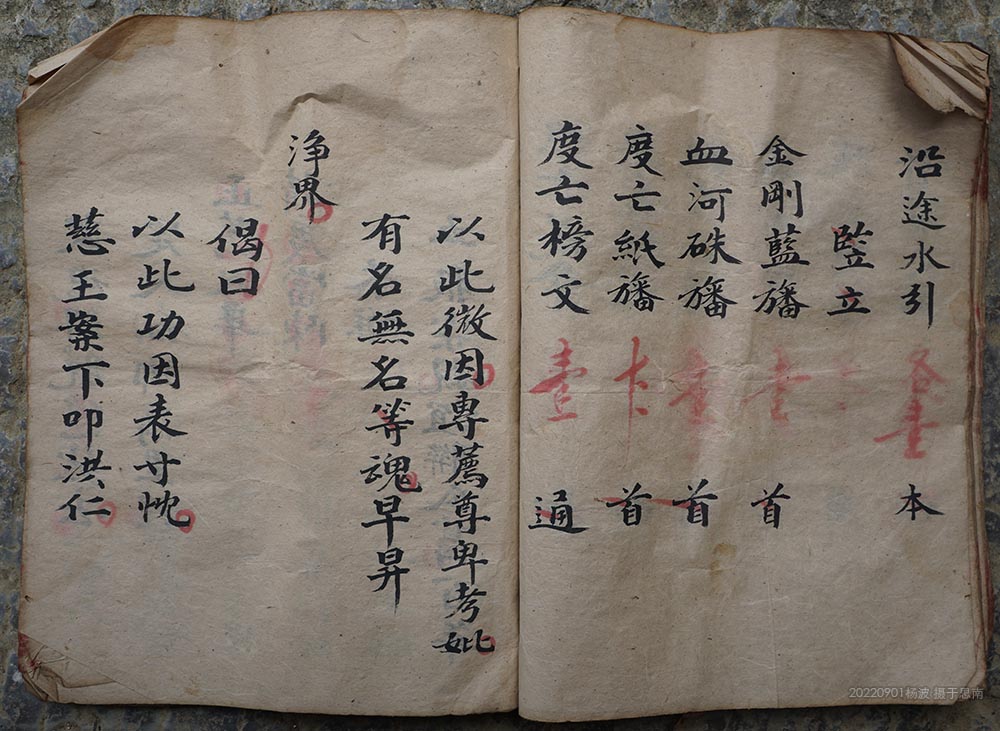 沿途水引 壹 本
竪立
金剛藍旛 壹 首
血河硃旛 首
度亡紙旛 首
度亡榜文 壹 通
以此微因專薦尊卑考妣
有名無名等魂早昇
浄界
偈曰
以此功因表寸忱
慈王案下叩洪仁
20220901杨波 摄于思南